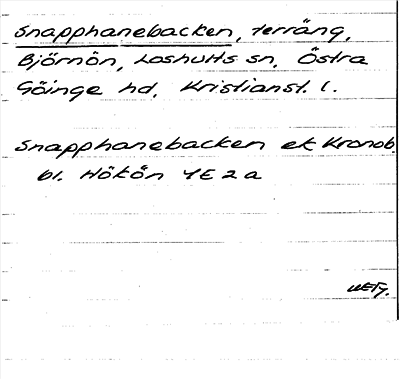 Snapphanebacken, terräng,
Björnön, Loshults sn, Östra
Göinge hd, Kristianst. l.
Snapphanebacken ek Kronob.
bl. Hökön 4E 2 a